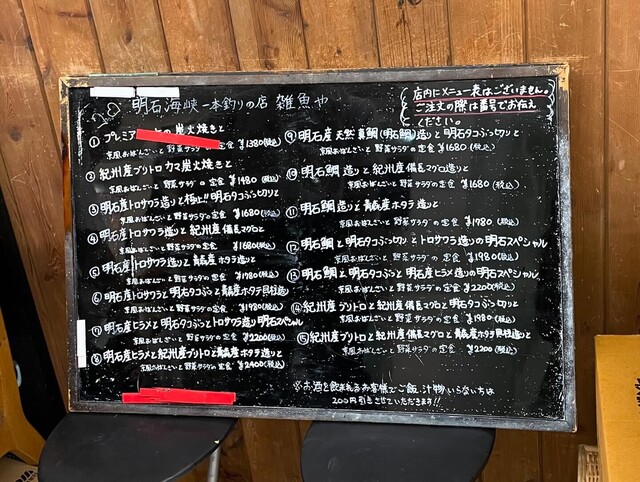 明石海峡一本釣りの店 雑魚や
店内にメニュー表はございません。
ご注文の際は番号でお伝え
ください。
① プレミア 炭火焼きと
京風おばんざいと野菜サラダの定食 ¥1380(税込)
② 紀州産ブリトロカマ炭火焼きと
京風おばんざいと野菜サラダの定食 ¥1480(税込)
③ 明石産トロサワラ造りと極上!!明石タコぶつ切りと
京風おばんざいと野菜サラダの定食 ¥1680(税込)
④ 明石産トロサワラ造りと紀州産備長マグロと
京風おばんざいと野菜サラダの定食 ¥1680(税込)
⑤ 明石産トロサワラ造りと青森産ホタテ造りと
京風おばんざいと野菜サラダの定食 ¥1780(税込)
⑥ 明石産トロサワラと明石タコぶつと青森産ホタテ貝柱造りと
京風おばんざいと野菜サラダの定食 ¥1980(税込)
⑦ 明石産ヒラメと明石タコぶつとトロサワラ造り明石スペシャル
京風おばんざいと野菜サラダの定食 ¥2200(税込)
⑧ 明石産ヒラメと紀州産ブリトロと青森産ホタテ造りと
京風おばんざいと野菜サラダの定食 ¥2400(税込)
⑨ 明石産天然真鯛(明石鯛)造りと明石タコぶつ切りと
京風おばんざいと野菜サラダの定食 ¥1680(税込)
⑩ 明石鯛造りと紀州産備長マグロ造りと
京風おばんざいと野菜サラダの定食 ¥1680(税込)
⑪ 明石鯛造りと青森産ホタテ造りと
京風おばんざいと野菜サラダの定食 ¥1980(税込)
⑫ 明石鯛と明石タコぶつ切りとトロサワラ造りの明石スペシャル
京風おばんざいと野菜サラダの定食 ¥1980(税込)
⑬ 明石鯛と明石タコぶつと明石産ヒラメ造りの明石スペシャル
京風おばんざいと野菜サラダの定食 ¥2200(税込)
⑭ 紀州産ブリトロと紀州産備長マグロと明石タコぶつ切りと
京風おばんざいと野菜サラダの定食 ¥1980(税込)
⑮ 紀州産ブリトロと紀州産備長マグロと青森産ホタテ貝柱造りと
京風おばんざいと野菜サラダの定食 ¥2200(税込)
※お酒を飲まれるお客様でご飯、汁物いらない方は
200円引きさせていただきます!!